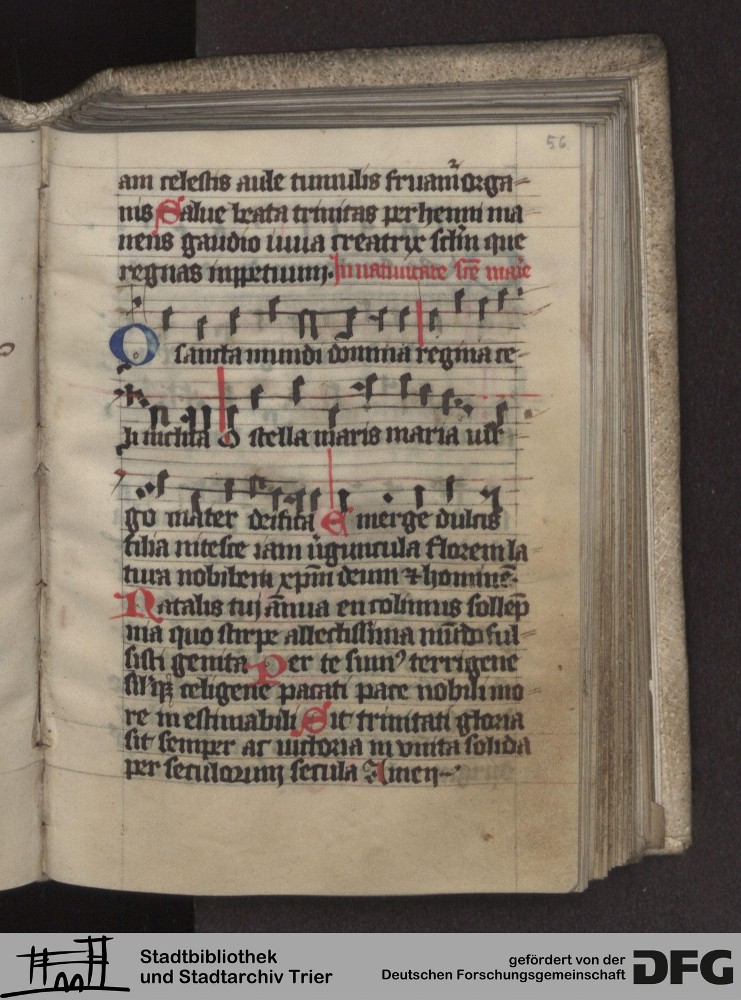 56
am celestis aule tinnulis fruam̄ orga-
nis Salue beata trinitas perhenni ma
nens gaudio una creatrix sc̄lm que
regnas inppetuum. In natiuitate sc̄e marie
O sancta mundi domina regina ce-
li inclita O stella maris maria uir
go mater deifica E merge dulcis
filia nitesce iam uirguncula florem la
tura nobilem xp̄m deum et hominē.
Natalis tui ānua en colimus sollēp
nia quo stirpe allectissima mūdo ful-
sisti genita Per te sumꝰ terrigene
silꝰqꝫ celigene pacati pace nobili mo-
re inestimabili Sit trinitati gloria
sit semper ac uictoria in vnita solida
per seculorum secula Amen
Stadtbibliothek
und Stadtarchiv Trier
gefördert von der
Deutschen Forschungsgemeinschaft
DFG